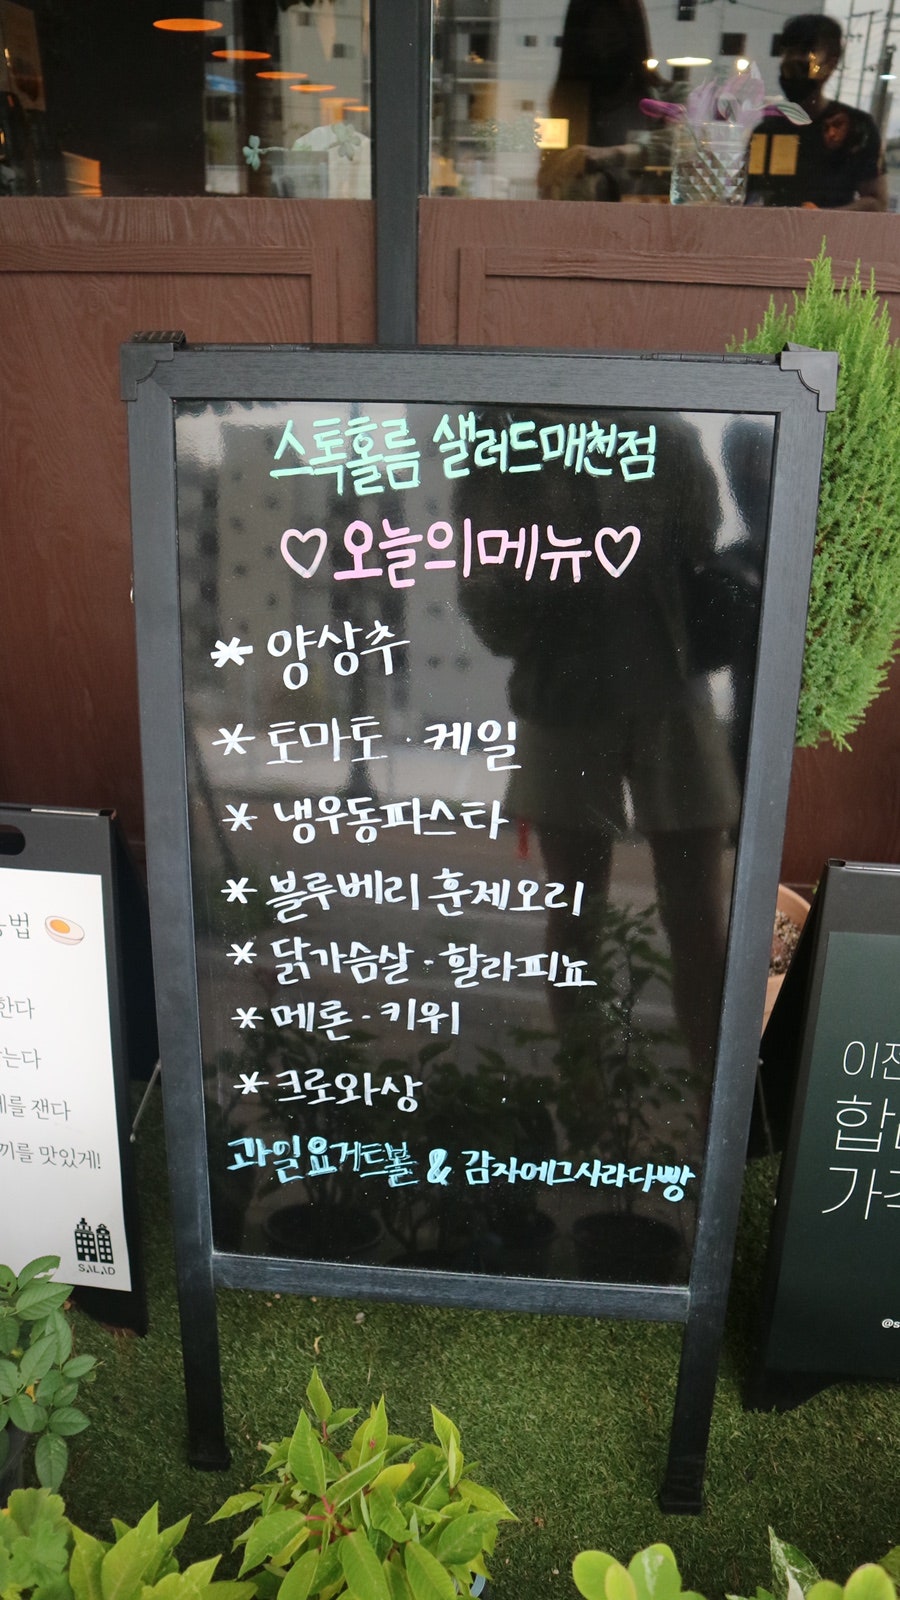 스톡홀름 샐러드매천점
♡오늘의메뉴♡
* 양상추
* 토마토 · 케일
* 냉우동파스타
* 블루베리 훈제오리
* 닭가슴살 · 할라피뇨
* 메론 · 키위
* 크로와상
과일요거트볼 & 감자에그사라다빵
한다
를 잰다
끼를 맛있게!
SALAD